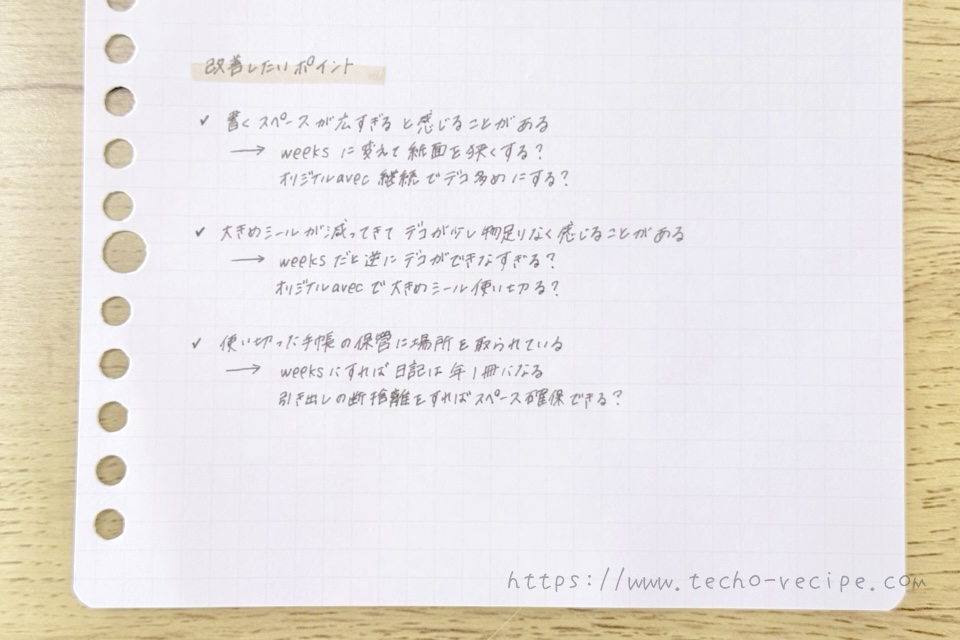 改善したいポイント
✓ 書くスペースが広すぎると感じることがある
→ weeks に変えて紙面を狭くする?
オリジナルavec 継続でデコ多めにする?
✓ 大きめシールが減ってきてデコが少し物足りなく感じることがある
→ weeks だと逆にデコができなすぎる?
オリジナルavec で大きめシール使い切る?
✓ 使い切った手帳の保管に場所を取られている
→ weeksにすれば日記は年1冊になる
引き出しの断捨離をすればスペース確保できる?
https://www.techo-recipe.com